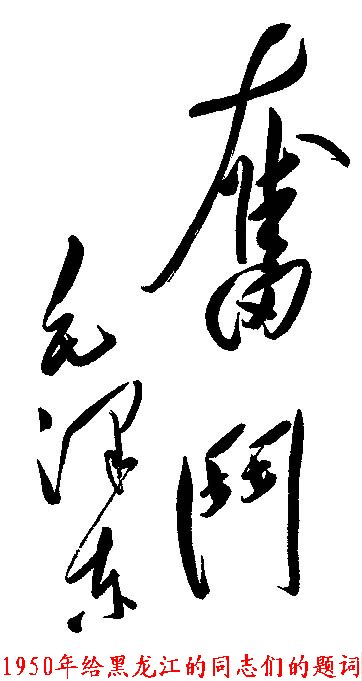 奮鬥
毛泽东
1950年给黑龙江的同志们的题词